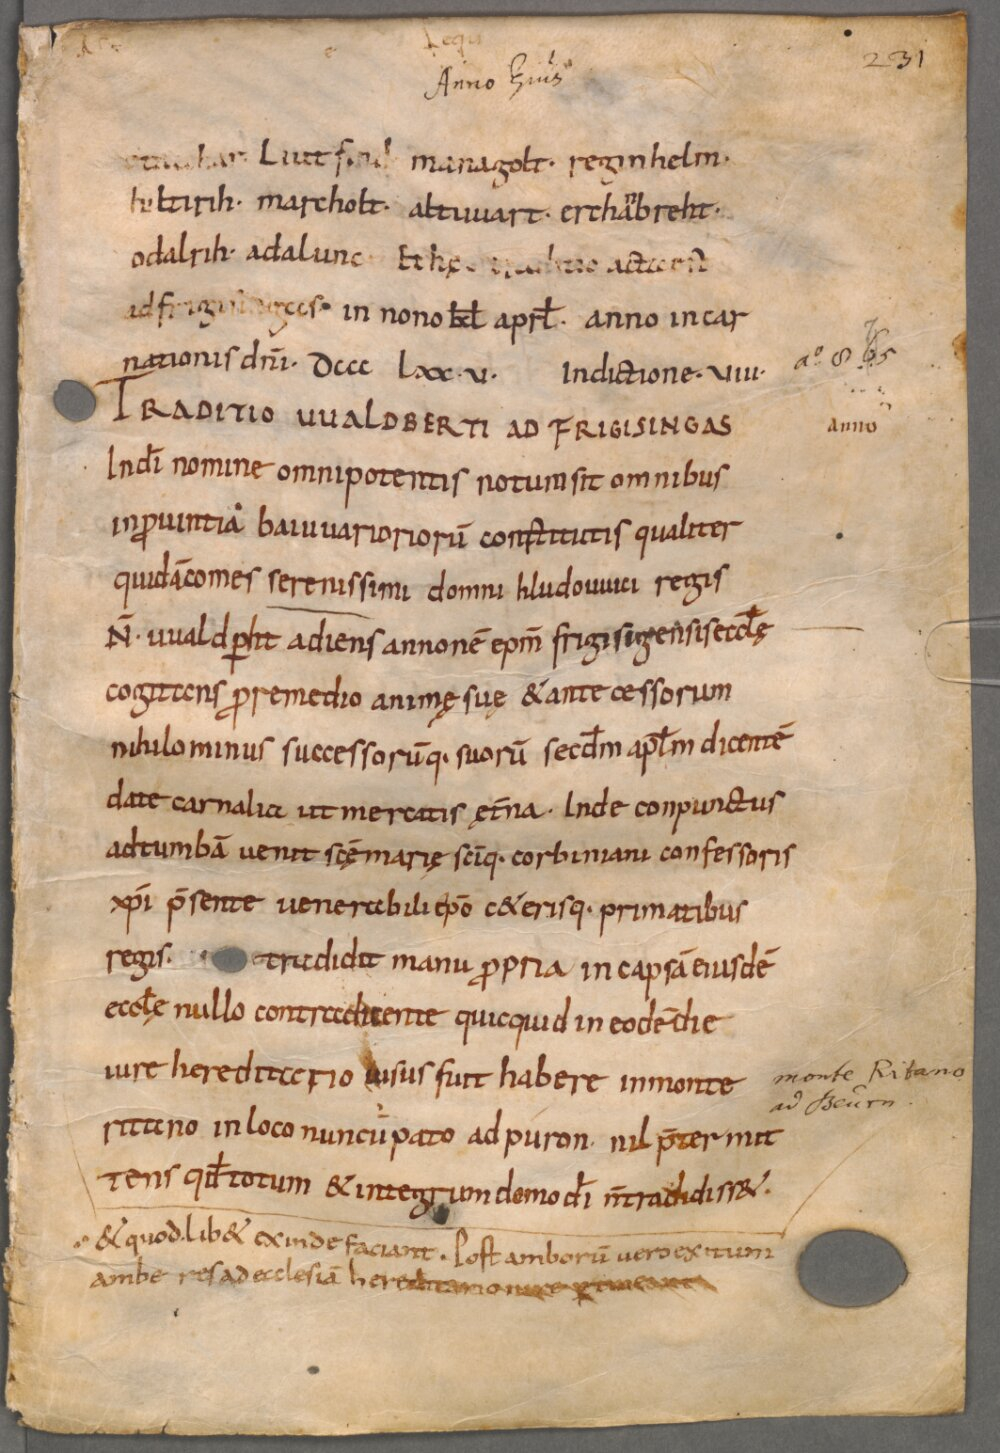 Anno
231
managolt. reginhelm.
hiltirih. marcholt. altiuuart. erchanbreht.
odalrih. adalunc Et hęc traditio acta est
ad frigisingas. in nono kɫ aprɫ. anno incar
nationis dn̄i. Dccc lxx.v. Indictione. viiii.
anno
TRADITIO UUALDBERTI AD FRIGISINGAS
In dī nomine omnipotentis notum sit omnibus
in ꝓuintia baiuuarioriorū constitutis qualiter
quidā comes serenissimi domni hludouuici regis
N̄. uualdꝑht adiens annonē ep̄m frigisigensis eccɫę
cogitans ꝓ remedio animę suę & ante cessorum
nihilominus successorūq. suorū secd̄m apɫm dicentē
date carnalia ut mercatis ęt̄na. Inde conpunctus
ad tumbā uenit scę̄ marię scīq. corbiniani confessoris
xp̄i p̄sente uenerabili ep̄o c&erisq. primatibus
regis. tradidit manu ꝓpria in capsā eiusdē
eccɫę nullo contradicente quicquid in eodē die
iure hereditario uisus fuit habere in monte
monte Ritano
ritano in loco nuncupato ad puron. nil p̄termit
tens qd̄ totum & integrum demo dī n̄ tradidiss&.
& quod lib& exinde faciant. Post amborū uero exitum
ambe res ad ecclesiā hereditario iure ꝑtineant